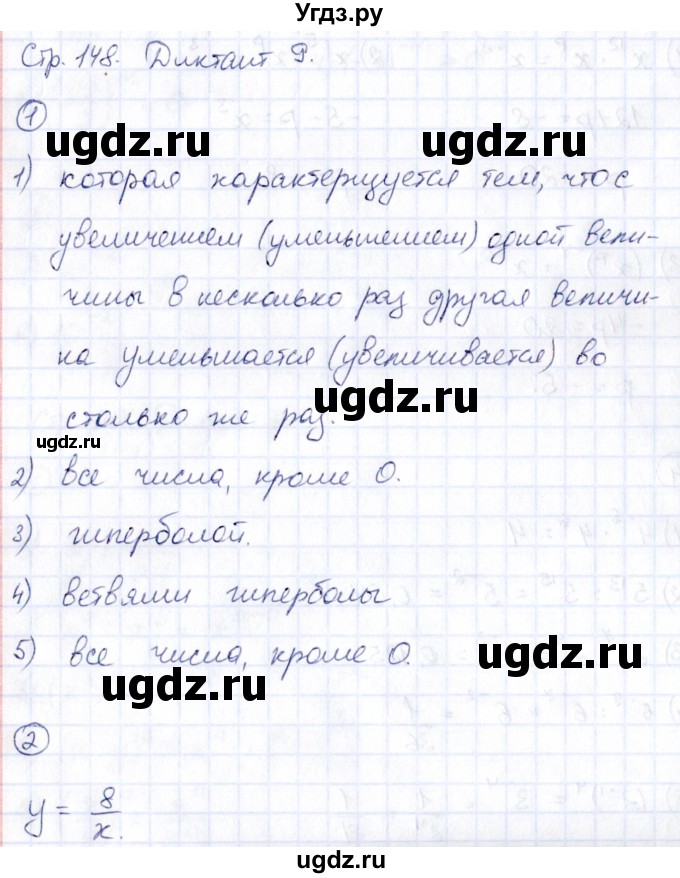 Угдз.ру
Стр. 148. Диктант 9.
1
ugdz.ru ugdz.ru
1) которая характеризуется тем, что с
увеличением (уменьшением) одной вели-
чины в несколько раз другая величи-
на уменьшается (увеличивается) во
ugdz.ru
столько же раз.
ugdz.ru
2) все числа, кроме 0.
3) гиперболой.
4) ветвями гиперболы
5) все числа, кроме 0.
ugdz.ru
ugdz.ru
2
y = 8/x.
ugdz.ru